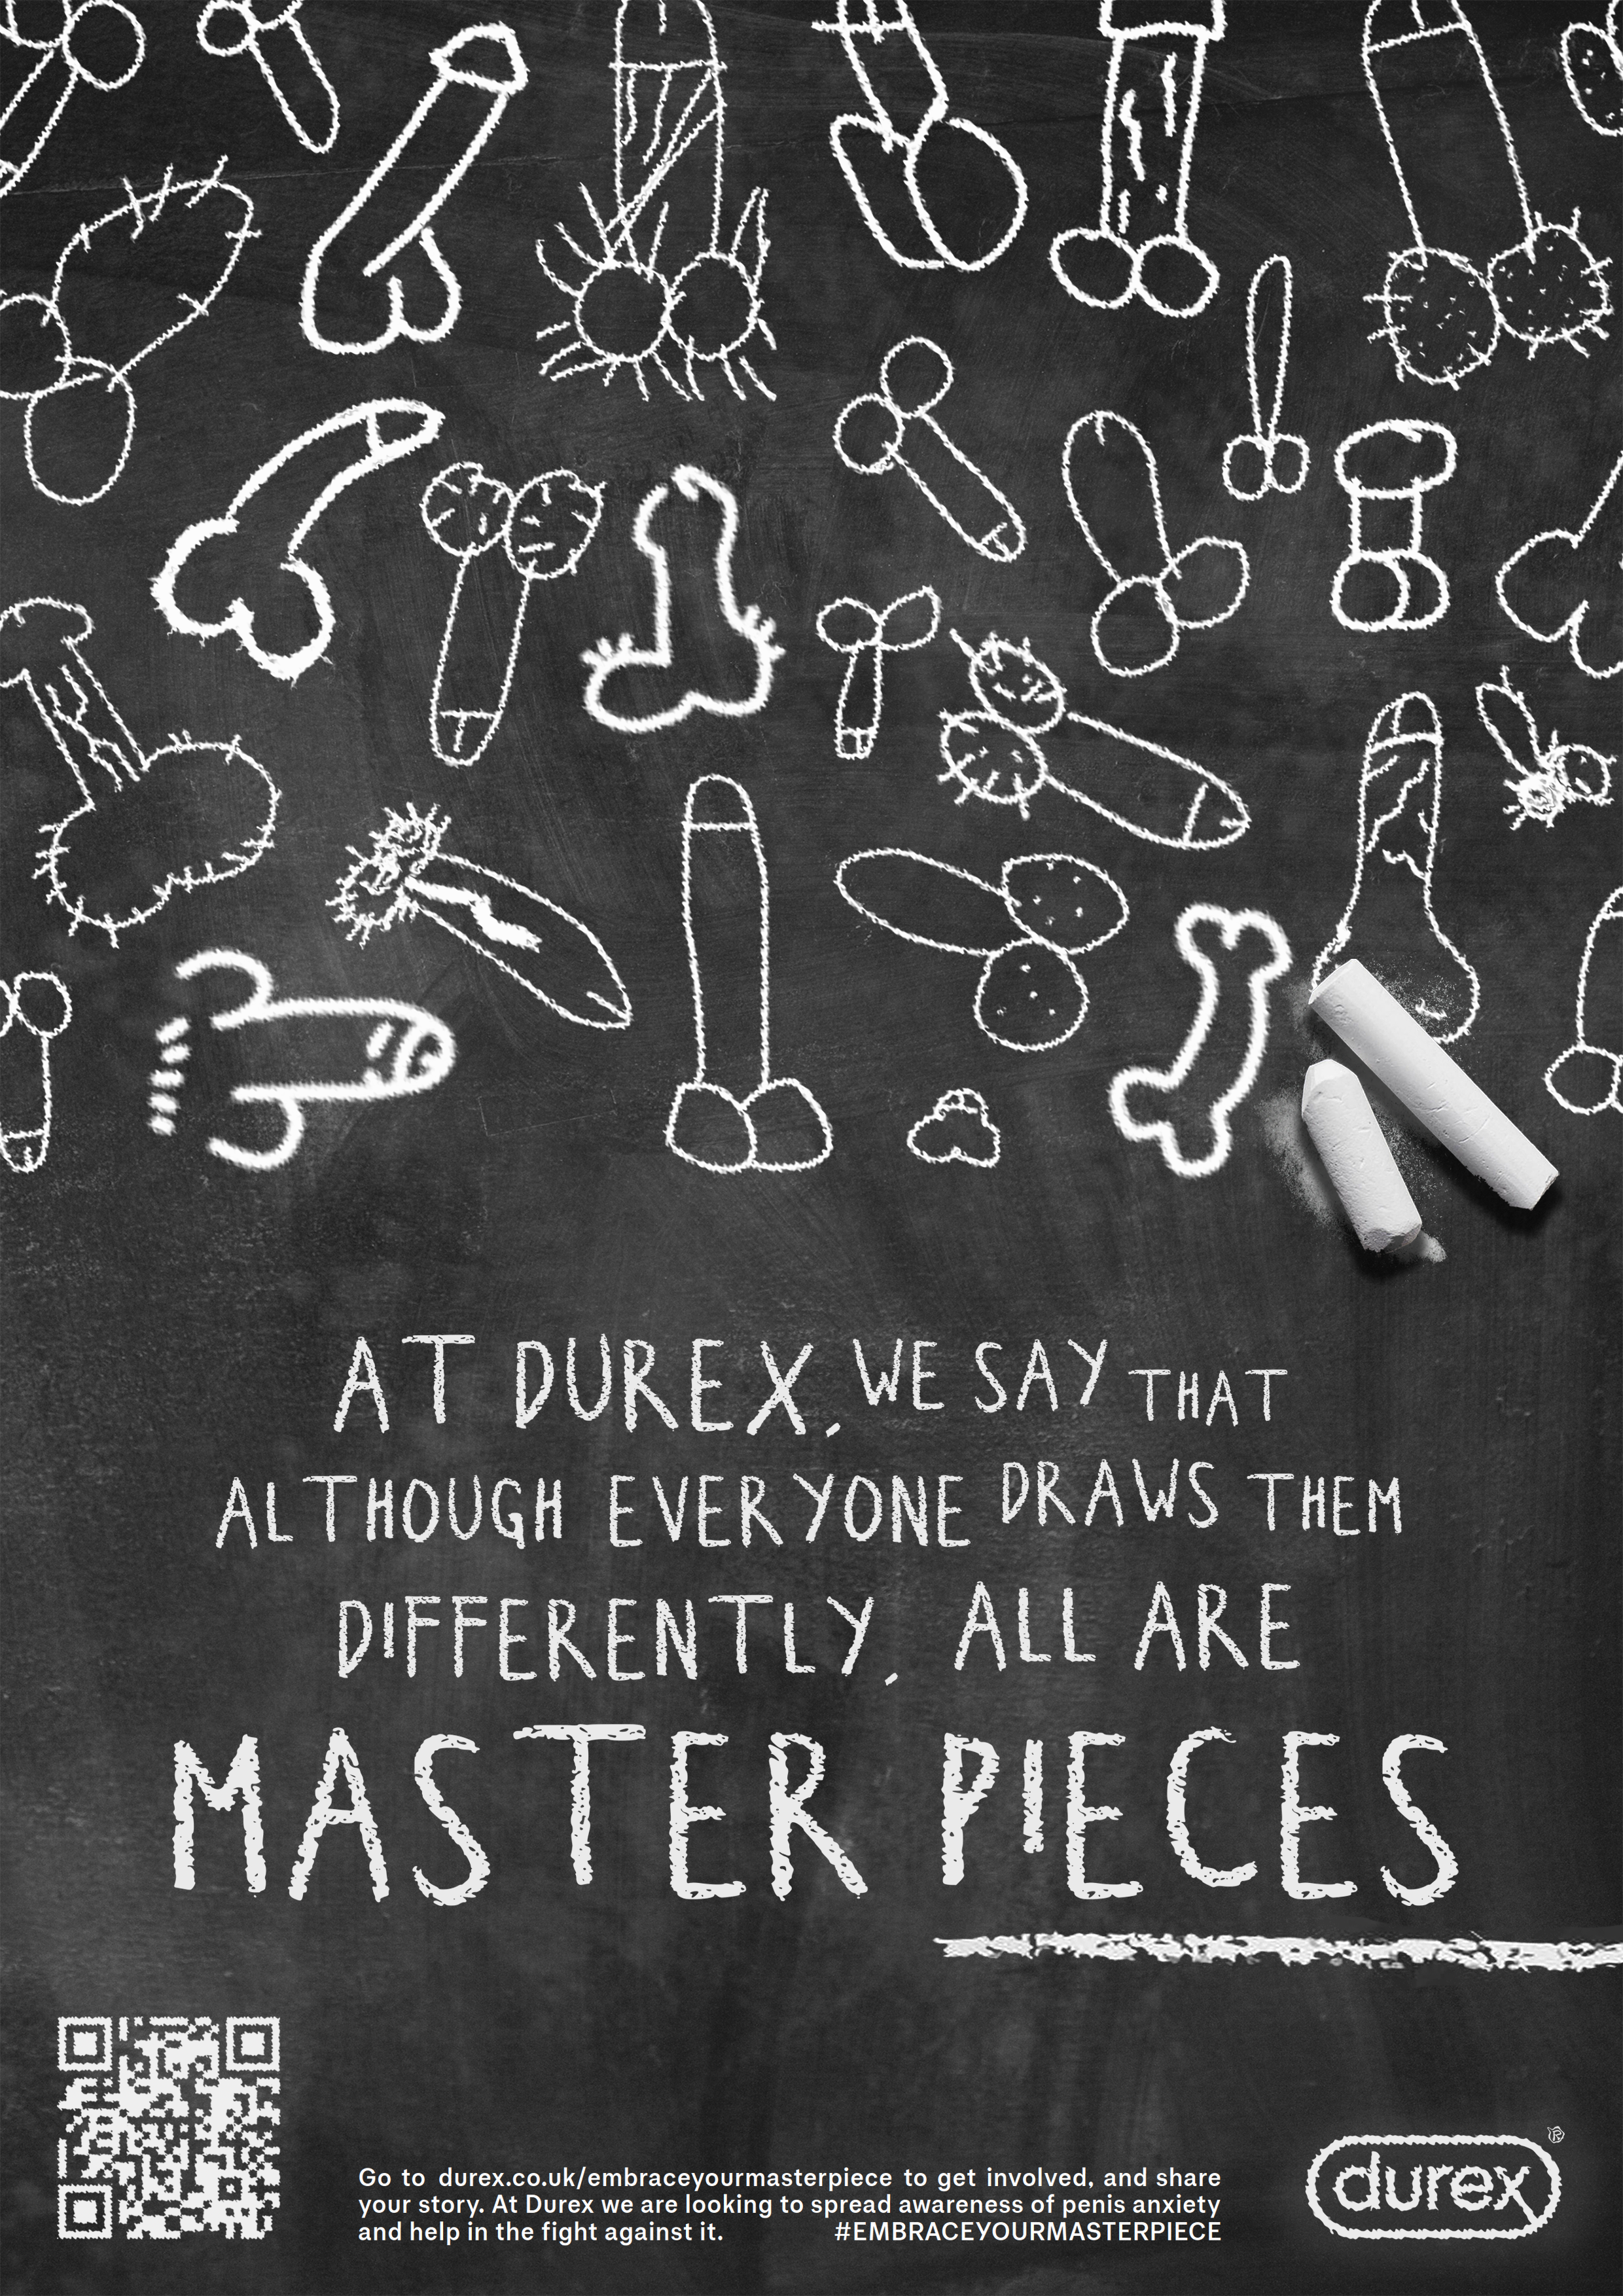 AT DUREX, WE SAY THAT
ALTHOUGH EVERYONE DRAWS THEM
DIFFERENTLY, ALL ARE
MASTER PIECES
Go to durex.co.uk/embraceyourmasterpiece to get involved, and share
your story. At Durex we are looking to spread awareness of penis anxiety
and help in the fight against it. #EMBRACEYOURMASTERPIECE
durex®